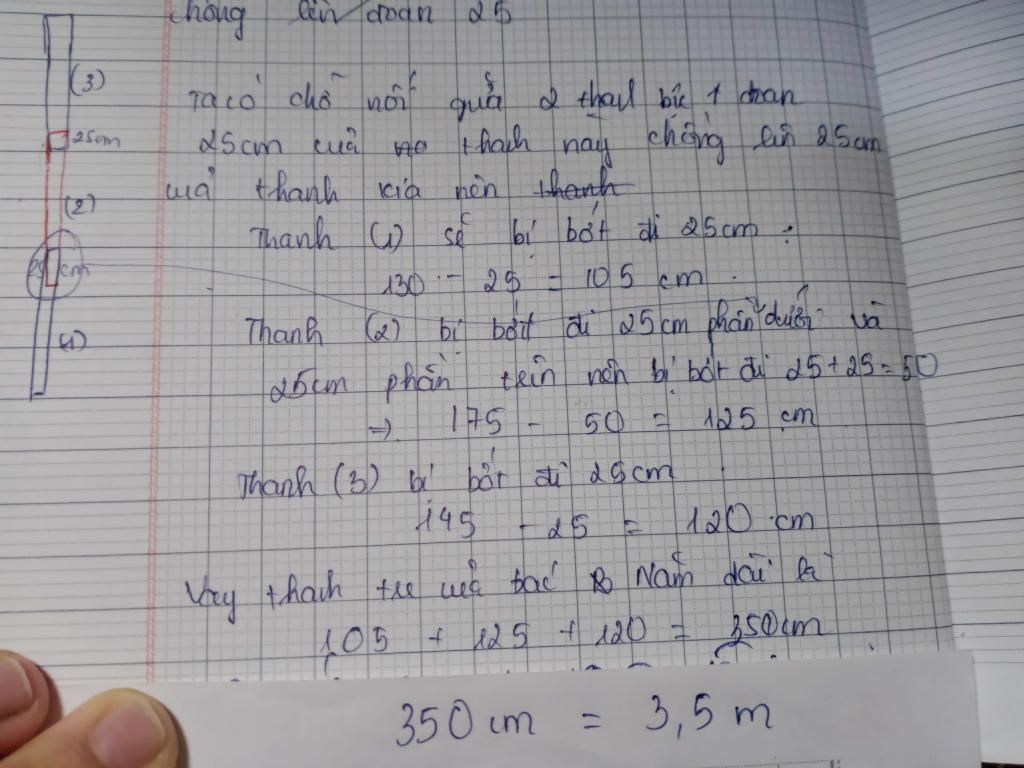 chồng lên đoạn 25
(3)
Ta có chỗ nối giữa 2 thanh bị 1 đoạn
25cm
25cm của thanh này chồng lên 25cm
của thanh kia nên thanh
(2)
Thanh (1) sẽ bị bớt đi 25cm :
cm
130 - 25 = 105 cm.
Thanh (2) bị bớt đi 25cm phần dưới và
(1)
25cm phần trên nên bị bớt đi 25+25=50
⇒ 175 - 50 = 125 cm
Thanh (3) bị bớt đi 25cm
145 - 25 = 120 cm
Vậy thanh tre của bác Năm dài là
105 + 125 + 120 = 350cm
350 cm = 3,5 m